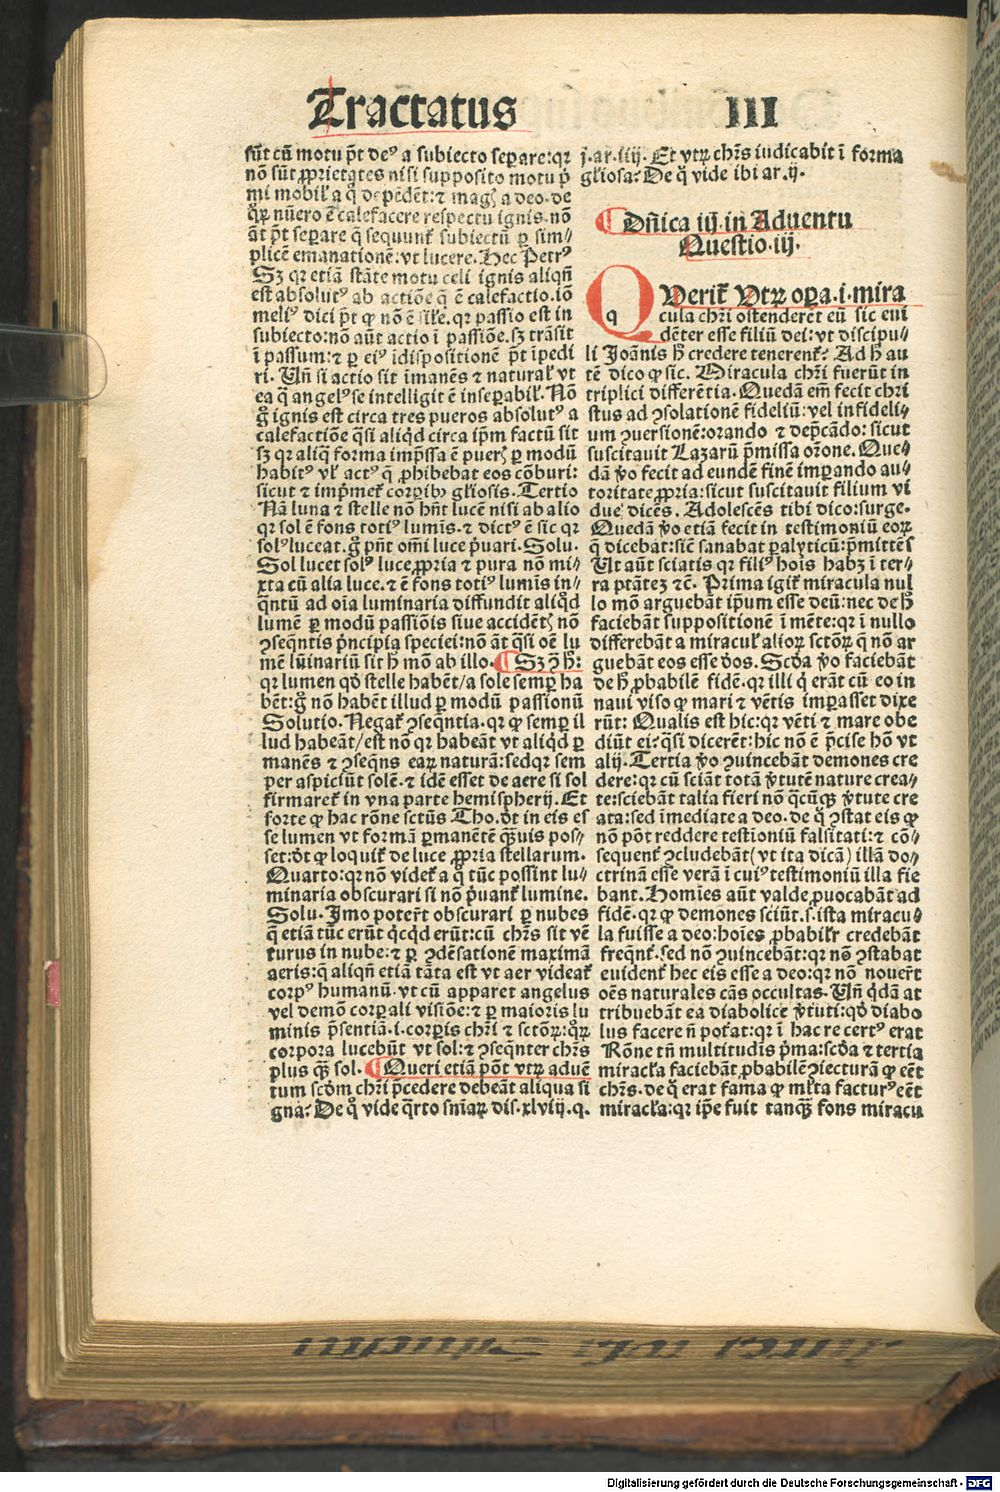 Tractatus III
sũt cũ motu p̃t deꝰ a subiecto separe: qꝛ
nõ sũt ꝓprietates nisi supposito motu p̃
mi mobil̕ a q̃ depẽdẽt: ⁊ mag̕ a deo. de
nũero ẽ calefacere respectu ignis. nõ
ãt p̃t separe q̃ sequunt̕ subiectũ ꝑ sim⸗
plicẽ emanationẽ: vt lucere. Hec Petrꝰ
Sꝫ qꝛ etiã stãte motu celi ignis aliqñ
est absolutꝰ ab actiõe q̃ ẽ calefactio. iõ
meliꝰ dici p̃t ꝙ nõ ẽ sil̕e. qꝛ passio est in
subiecto: nõ aũt actio ĩ passiõe. sꝫ trãsit
ĩ passum: ⁊ ꝑ eiꝰ ĩdispositionẽ p̃t ĩpedi
ri. Uñ si actio sit ĩmanẽs ⁊ natural̕ vt
ea q̃ angelꝰ se intelligit ẽ insepabil̕. Nõ
g̊ ignis est circa tres pueros absolutꝰ a
calefactiõe q̃si aliqd̕ circa ip̃m factũ sit
sꝫ qꝛ aliq̃ forma imp̃ssa ẽ puer̕ ꝑ modũ
habitꝰ vl̕ actꝰ q̃ ꝓhibebat eos cõburi:
sicut ⁊ imp̃met̕ corpibꝰ gl̕iosis. Tertio
Nã luna ⁊ stelle nõ hñt lucẽ nisi ab alio
qꝛ sol ẽ fons totiꝰ lumĩs. ⁊ dictꝰ ẽ sic qꝛ
solꝰ luceat. g̊ pñt om̃i luce p̃uari. Solu.
Sol lucet solꝰ luce ꝓpria ⁊ pura nõ mi⸗
xta cũ alia luce. ⁊ ẽ fons totiꝰ lumĩs in⸗
q̃ntũ ad oĩa luminaria diffundit aliqd̕
lumẽ ꝑ modũ passiõis siue accidẽt̕ nõ
ꝯseq̃ntis p̃ncipia speciei: nõ ãt q̃si oẽ lu
mẽ lũinariũ sit h̊ mõ ab illo. ¶ Sꝫ ꝯ̃ h̊:
qꝛ lumen qd̕ stelle habẽt/ a sole semp ha
bẽt: g̊ nõ habẽt illud ꝑ modũ passionũ
Solutio. Negat̕ ꝯseq̃ntia. qꝛ ꝙ semp il
lud habeãt/ est nõ qꝛ habeãt vt aliqd̕ ꝑ
manẽs ⁊ ꝯseq̃ns eaꝝ naturã: sed qꝛ sem
per aspiciũt solẽ. ⁊ idẽ esset de aere si sol
firmaret̕ in vna parte hemispherij. Et
forte ꝙ hac rõne sctũs Tho. d̕t in eis es
se lumen vt formã ꝑmanẽtẽ q̃uis pos⸗
set: d̕t ꝙ loquit̕ de luce ꝓpria stellarum.
Quarto: qꝛ nõ videt̕ a q̊ tũc possint lu⸗
minaria obscurari si nõ p̃uant̕ lumine.
Solu. Jmo poter̃t obscurari ꝑ nubes
q̃ etiã tũc erũt qcqd̕ erũt: cũ chr̃s sit vẽ
turus in nube: ⁊ ꝑ ꝯdẽsationẽ maximã
aeris: q̃ aliqñ etiã tãta est vt aer videat̕
corpꝰ humanũ. vt cũ apparet angelus
vel demõ corpali visiõe: ⁊ ꝑ maioris lu
minis p̃sentiã. i. corpis chr̃i ⁊ sctõꝝ: qꝝ
corpora lucebũt vt sol: ⁊ ꝯseq̃nter chr̃s
plus q̃ sol. ¶ Queri etiã põt vtꝝ aduẽ
tum scd̕m chr̃i p̃cedere debeãt aliqua si
gna? De q̊ vide q̃rto sniãꝝ dis. xlviij. q.
j. ar. iiij. Et vtꝝ chr̃s iudicabit ĩ forma
gl̕iosa? De q̊ vide ibi ar. ij.
¶ Dñica iij. in Aduentu
Questio. iij.
QUerit̕ Utꝝ oꝑa. i. mira
cula chr̃i ostenderẽt eũ sic eui
dẽter esse filiũ dei: vt discipu⸗
li Joãnis h̊ credere tenerent̕? Ad h̊ au
tẽ dico ꝙ sic. Miracula chr̃i fuerũt in
triplici differẽtia. Quedã em̃ fecit chri
stus ad ꝯsolationẽ fideliũ: vel infideli⸗
um ꝯuersionẽ: orando ⁊ dep̃cãdo: sicut
suscitauit Lazarũ p̃missa or̃one. Que⸗
dã ỹo fecit ad eundẽ finẽ imꝑando au⸗
toritate ꝓpria: sicut suscitauit filium vi
due dicẽs. Adolescẽs tibi dico: surge.
Quedã ỹo etiã fecit in testimoniũ eoꝝ
q̃ dicebat: sic̃ sanabat ꝑalyticũ: p̃mittẽs
Ut aũt sciatis qꝛ filiꝰ hoĩs habꝫ ĩ ter⸗
ra ptãteꝫ ⁊c̃. Prima igit̕ miracula nul
lo mõ arguebãt ip̃um esse deũ: nec de h̊
faciebãt suppositionẽ ĩ mẽte: qꝛ ĩ nullo
differebãt a miracul̕ alioꝝ sctõꝝ q̃ nõ ar
guebãt eos esse d̕os. Scd̕a ỹo faciebãt
de h̊ ꝓbabilẽ fidẽ. qꝛ illi q̃ erãt cũ eo in
naui viso ꝙ mari ⁊ vẽtis imꝑasset dixe
rũt: Qualis est hic: qꝛ vẽti ⁊ mare obe
diũt ei? q̃si dicerẽt: hic nõ ẽ p̃cise hõ vt
alij. Tertia ỹo ꝯuincebãt demones cre
dere: qꝛ cũ sciãt totã ỹtutẽ nature crea⸗
te: sciebãt talia fieri nõ q̃cũqꝫ ỹtute cre
ata: sed ĩmediate a deo. de q̊ ꝯstat eis ꝙ
nõ põt reddere testĩoniũ falsitati: ⁊ cõ⸗
sequent̕ ꝯcludebãt (vt ita dicã) illã do⸗
ctrinã esse verã ĩ cuiꝰ testimoniũ illa fie
bant. Homĩes aũt valde ꝓuocabãt ad
fidẽ. qꝛ ꝙ demones sciũt. s. ista miracu⸗
la fuisse a deo: hoĩes ꝓbabilr̕ credebãt
freq̃nt̕. sed nõ ꝯuincebãt: qꝛ nõ ꝯstabat
euident̕ hec eis esse a deo: qꝛ nõ nouer̃t
oẽs naturales cãs occultas. Uñ qd̕ã at
tribuebãt ea diabolice ỹtuti: qd̕ diabo
lus facere ñ potat̕: qꝛ ĩ hac re certꝰ erat
Rõne tñ multitudĩs p̃ma: scd̕a ⁊ tertia
miracl̕a faciebãt ꝓbabilẽ ꝯiecturã ꝙ eẽt
chr̃s. de q̊ erat fama ꝙ ml̕ta facturꝰ eẽt
miracl̕a: qꝛ ip̃e fuit tanq̃ fons miracu
Digitalisierung gefördert durch die Deutsche Forschungsgemeinschaft - DFG